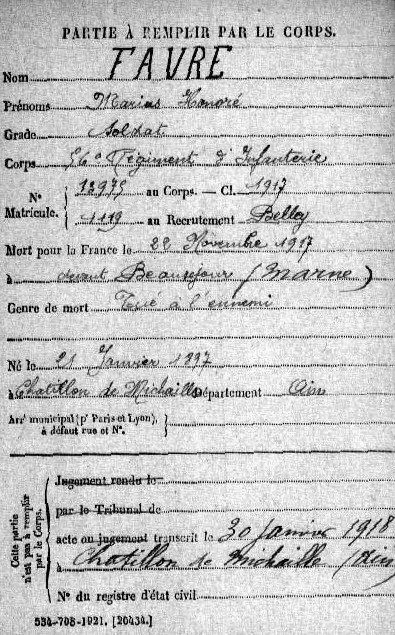 PARTIE À REMPLIR PAR LE CORPS.
Nom FAVRE
Prénoms Marius Honoré
Grade Soldat
Corps 56e Régiment d'Infanterie
N° Matricule. { 12975 au Corps. — Cl. 1917
1119 au Recrutement Belley
Mort pour la France le 22 Novembre 1917
à devant Beauséjour (Marne)
Genre de mort Tué à l'ennemi
Né le 21 Janvier 1897
à Chatillon de Michaille Département Ain
Arrt municipal (pr Paris et Lyon),
à défaut rue et N°.
Cette partie n'est pas à remplir par le Corps.
Jugement rendu le
par le Tribunal de
acte ou jugement transcrit le 30 Janvier 1918
à Chatillon de Michaille (Ain)
N° du registre d'état civil
534-708-1921. [20434.]